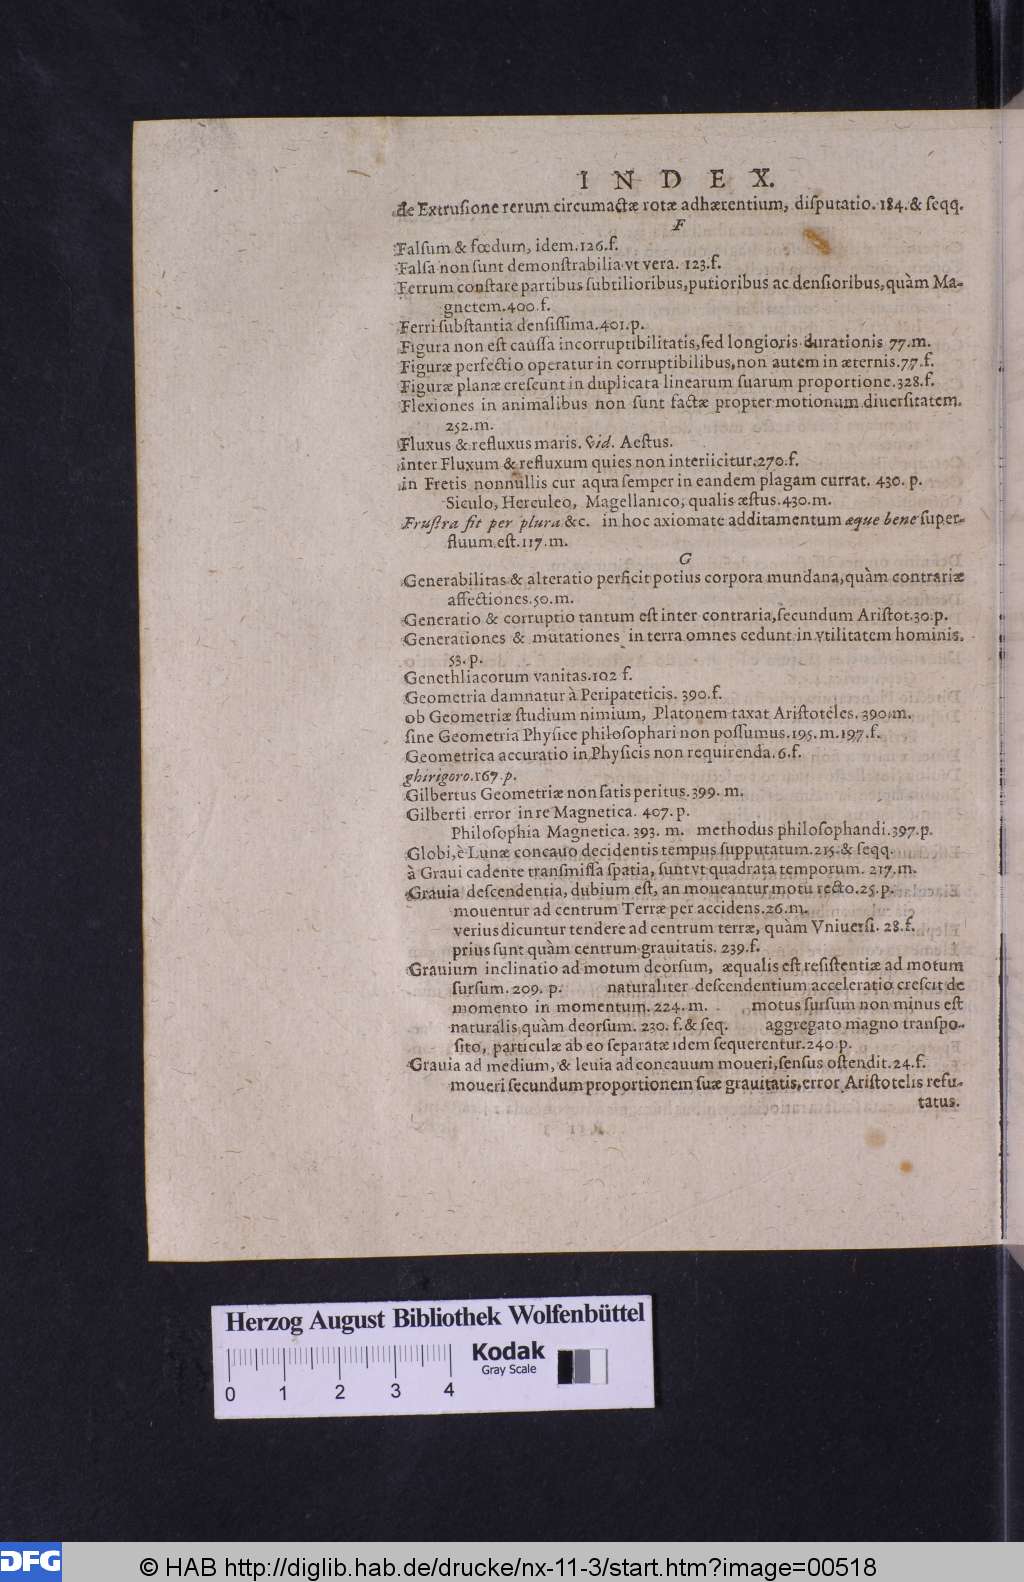 INDEX.
de Extrusione rerum circumactæ rotæ adhærentium, disputatio. 184. & seqq.
F
Falsum & fœdum, idem. 126. f.
Falsa non sunt demonstrabilia vt vera. 123. f.
Ferrum constare partibus subtilioribus, purioribus ac densioribus, quàm Ma-
gnetem. 400. f.
Ferri substantia densissima. 401. p.
Figura non est caussa incorruptibilitatis, sed longioris durationis 77. m.
Figuræ perfectio operatur in corruptibilibus, non autem in æternis. 77. f.
Figuræ planæ crescunt in duplicata linearum suarum proportione. 328. f.
Flexiones in animalibus non sunt factæ propter motionum diuersitatem.
252. m.
Fluxus & refluxus maris. Vid. Aestus.
inter Fluxum & refluxum quies non interiicitur. 270. f.
in Fretis nonnullis cur aqua semper in eandem plagam currat. 430. p.
Siculo, Herculeo, Magellanico, qualis æstus. 430. m.
Frustra fit per plura &c. in hoc axiomate additamentum æque bene super-
fluum est. 117. m.
G
Generabilitas & alteratio perficit potius corpora mundana, quàm contrariæ
affectiones. 50. m.
Generatio & corruptio tantum est inter contraria, secundum Aristot. 30. p.
Generationes & mutationes in terra omnes cedunt in vtilitatem hominis.
53. p.
Genethliacorum vanitas. 102 f.
Geometria damnatur à Peripateticis. 390. f.
ob Geometriæ studium nimium, Platonem taxat Aristoteles. 390. m.
sine Geometria Physice philosophari non possumus. 195. m. 197. f.
Geometrica accuratio in Physicis non requirenda. 6. f.
ghirigoro. 167. p.
Gilbertus Geometriæ non satis peritus. 399. m.
Gilberti error in re Magnetica. 407. p.
Philosophia Magnetica. 393. m. methodus philosophandi. 397. p.
Globi, è Lunæ concauo decidentis tempus supputatum. 215. & seqq.
à Graui cadente transmissa spatia, sunt vt quadrata temporum. 217. m.
Grauia descendentia, dubium est, an moueantur motu recto. 25. p.
mouentur ad centrum Terræ per accidens. 26. m.
verius dicuntur tendere ad centrum terræ, quàm Vniuersi. 28. f.
prius sunt quàm centrum grauitatis. 239. f.
Grauium inclinatio ad motum deorsum, æqualis est resistentiæ ad motum
sursum. 209. p. naturaliter descendentium acceleratio crescit de
momento in momentum. 224. m. motus sursum non minus est
naturalis quàm deorsum. 230. f. & seq. aggregato magno transpo-
sito, particulæ ab eo separatæ idem sequerentur. 240 p.
Grauia ad medium, & leuia ad concauum moueri, sensus ostendit. 24. f.
moueri secundum proportionem suæ grauitatis, error Aristotelis refu-
tatus.
Herzog August Bibliothek Wolfenbüttel
Kodak
Gray Scale
0 1 2 3 4
DFG © HAB http://diglib.hab.de/drucke/nx-11-3/start.htm?image=00518